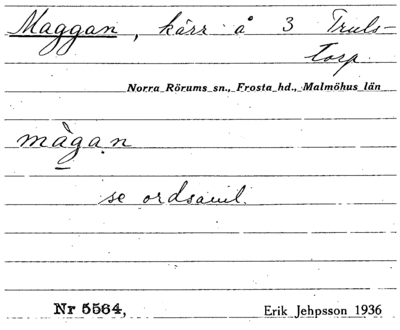 Maggan, kärr å 3 Truls-
torp.
Norra Rörums sn., Frosta hd., Malmöhus län
màgan
se ordsaml.
Nr 5564, Erik Jehpsson 1936